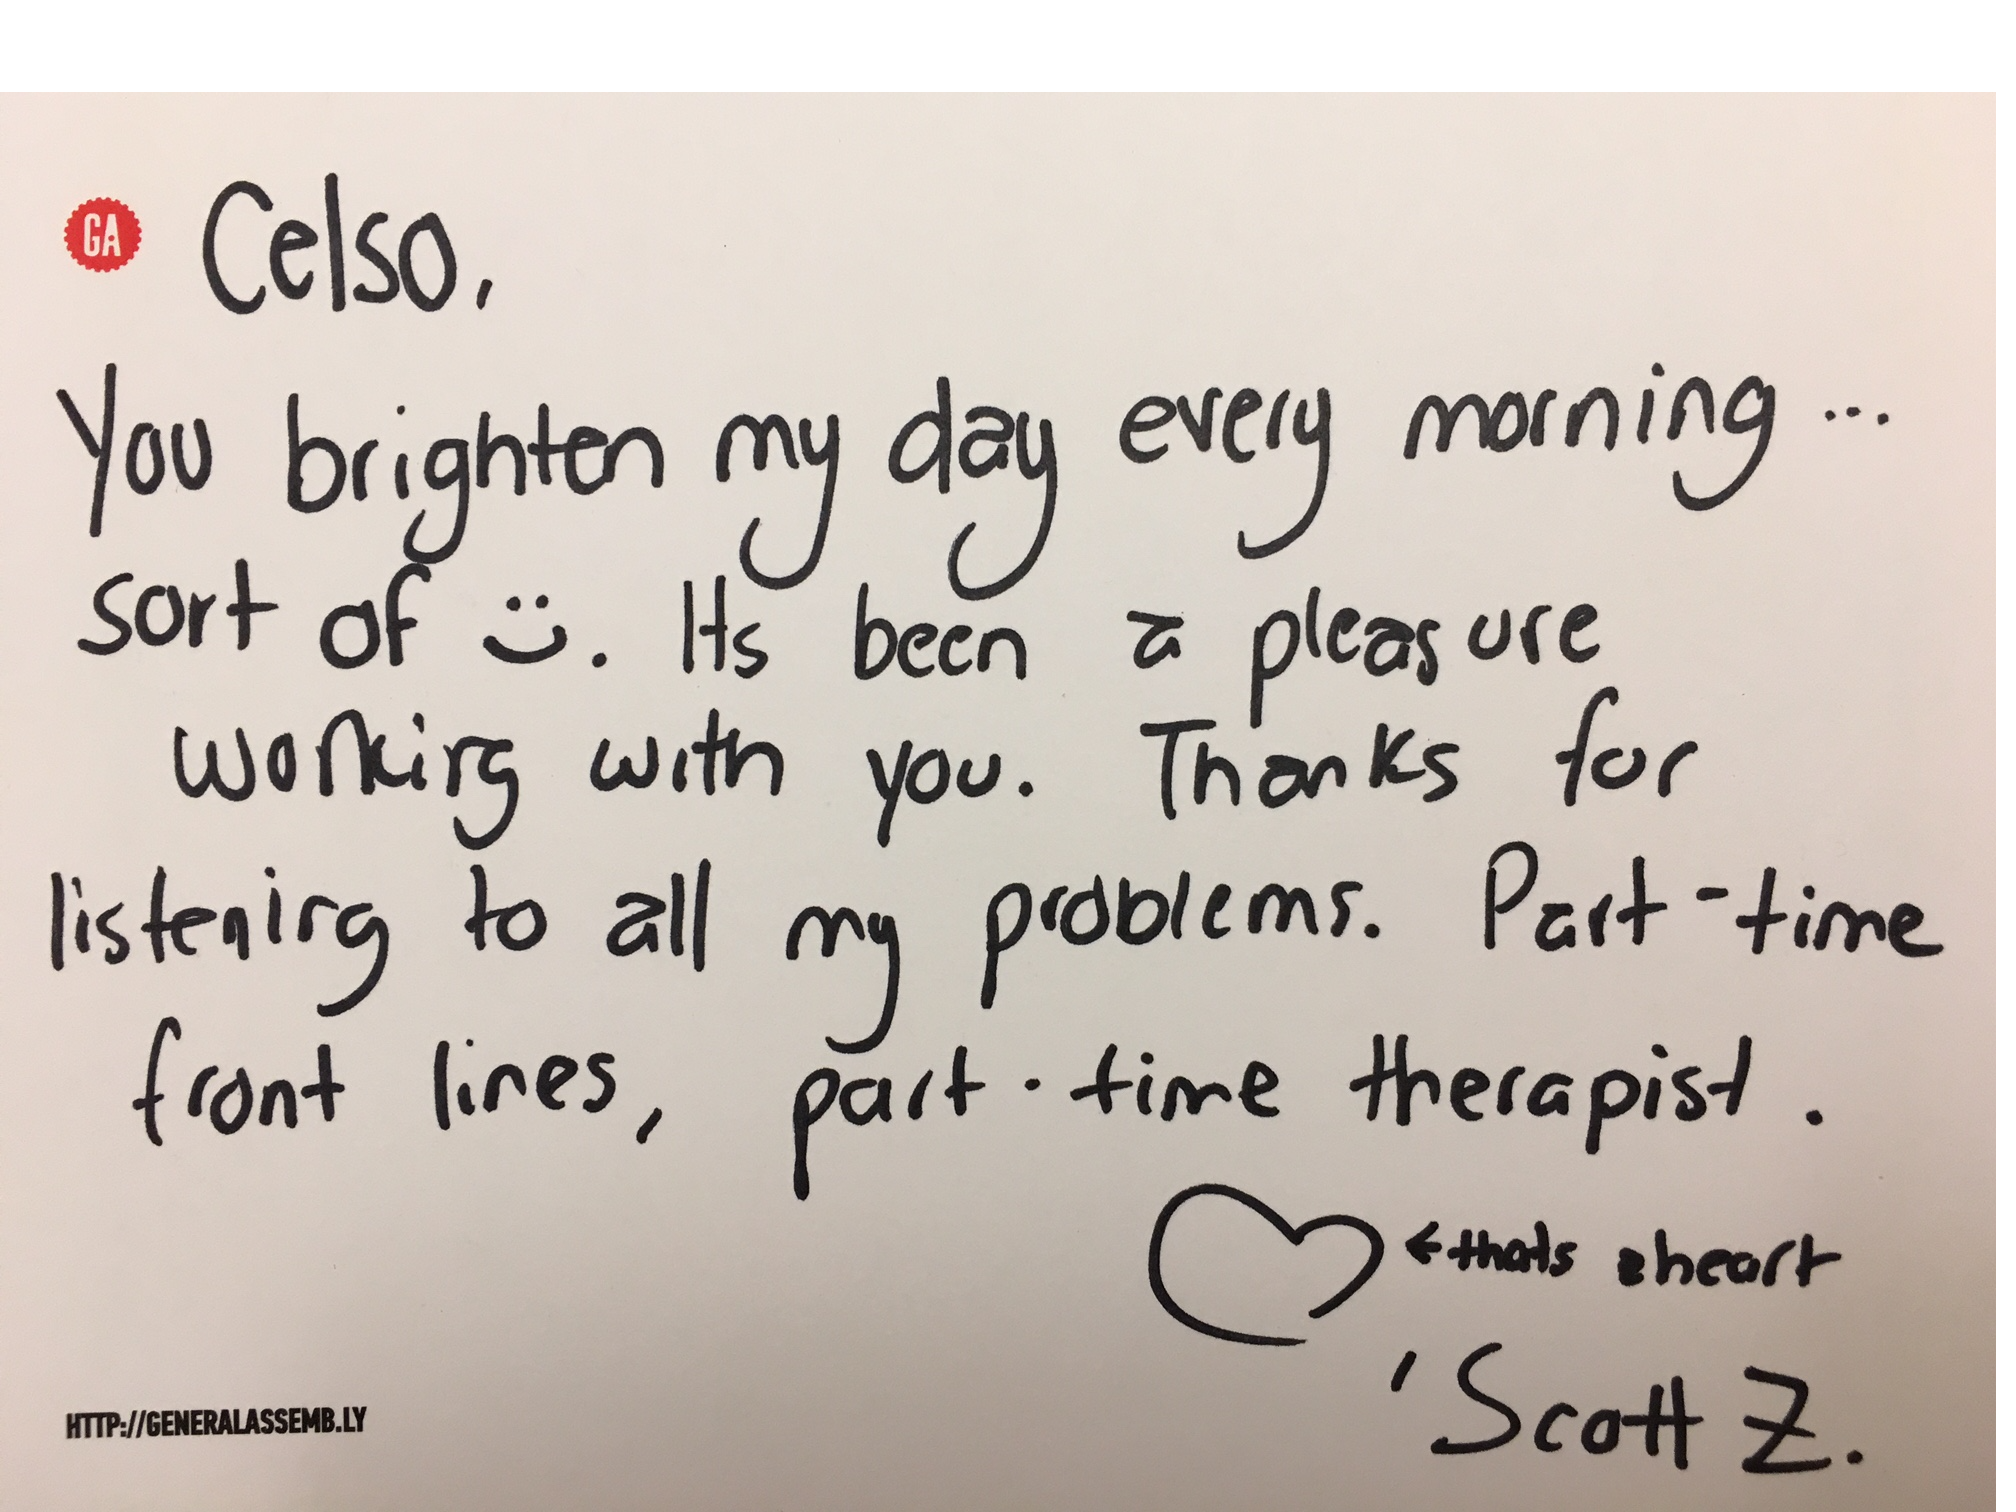 GA
Celso,
You brighten my day every morning...
sort of :). Its been a pleasure
working with you. Thanks for
listening to all my problems. Part-time
front lines, part-time therapist.
← thats a heart
'Scott Z.
HTTP://GENERALASSEMB.LY